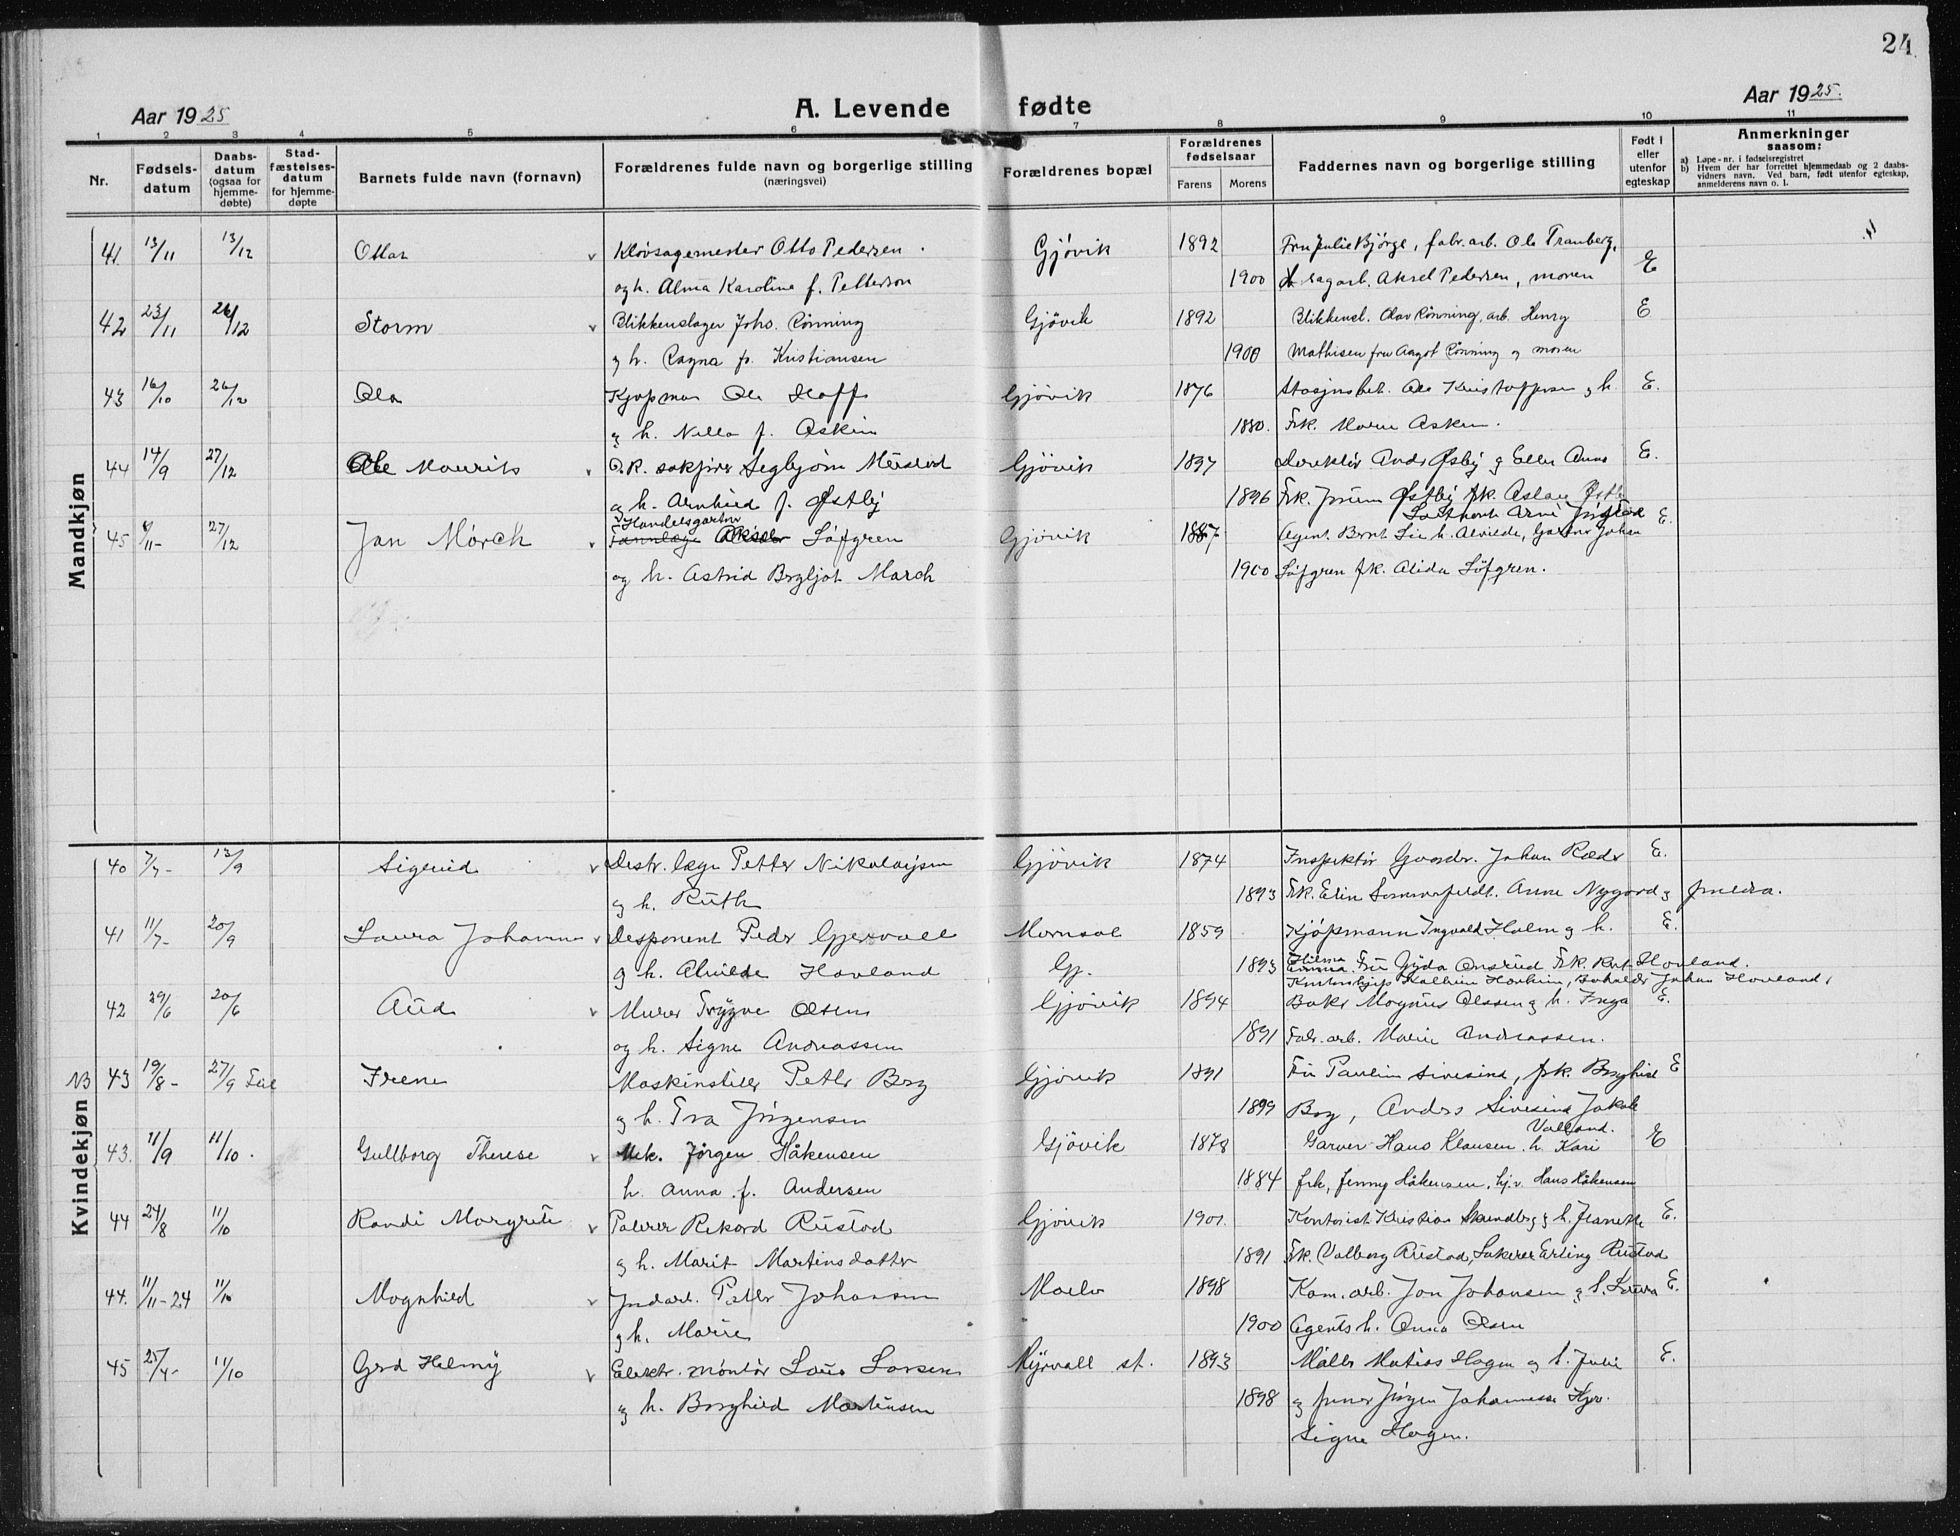 24
Aar 1925
A. Levende fødte
Aar 1925.
1 2 3 4 5 6 7 8 9 10 11
Nr.
Fødsels-
datum
Daabs-
datum
(ogsaa for
hjemme-
døbte)
Stad-
fæstelses-
datum
for hjemme-
døpte
Barnets fulde navn (fornavn)
Forældrenes fulde navn og borgerlige stilling
(næringsvei)
Forældrenes bopæl
Forældrenes
fødselsaar
Farens Morens
Faddernes navn og borgerlige stilling
Født i
eller
utenfor
egteskap
Anmerkninger
saasom:
a) Løpe-nr. i fødselsregistret
b) Hvem der har forrettet hjemmedaab og 2 daabs-
vidners navn. Ved barn, født utenfor egteskap,
anmelderens navn o. l.
Mandkjøn
41. 13/11 13/12 Ottar Kløvsagemester Otto Pedersen Gjøvik 1892 Fru Julie Bjørge, fabr. arb. Ole Tranberg,
og h. Alma Karoline f. Petterson 1900 sagarb. Aksel Pedersen, moren E
42 23/11 26/12 Storm Blikkenslager Johs. Rønning Gjövik 1892 Blikkensl. Olav Rønning, arb. Henry E
og h. Ragna f. Kristiansen 1900 Mathisen fru Aagot Rønning og moren
43 16/10 26/12 Ola Kjøpman Ole Hoff Gjøvik 1876 Ole Kristoffersen og h. E.
og h. Nella f. Askim 1880. Frk. Maren Askim.
44 14/9 27/12 Ole Mauritz O.R. sakfører Segbjørn Gjövik 1897 Direktør Anders Østby og Ellen Anna E.
og h. Arnhild f. Østby 1896 Frk. Østby frk. Aslau
45 11- 27/12 Jan Mörch Handelsgartner
Löfgren Gjövik 1887 Agent Bernt Lie h. Alvilde, Gartner Johan E.
og h. Astrid Bergljot March 1900 Löfgren frk. Alida Löfgren.
Kvindekjøn
40 7/7- 13/9 Sigrid Distr. læge Petter Nikolaisen Gjövik 1874 Inspektør Johan Ræder E.
og h. Ruth 1893 Frk. Elin Sommerfeldt. Anne Nygard og foreldra.
41 11/7- 20/9 Laura Johanne Disponent Peder Gjervall Gj. 1859 Kjøpmann Ingvald Holm og h. E.
og h. Alvilde Hovland 1893 Hilma Fru Gyda Onsrud Frk. Hovland.
Johan Hovland,
42 29/6 20/6 Aud Murer Trygve Olsen Gjövik 1894 Baker Magnus Olssen og h. Inga E.
og h. Signe Andreassen 1891 Fabr. arb. Marie Andreassen.
NB 43 19/8- 27/9 Irene Maskinstiller Petter Berg Gjövik 1891 Fru Paulin Sivesind, frk. Borghild E
og h. Tra Jörgensen 1899 Berg, Anders Sivesind Jakob
Valland.
43. 11/9 11/10. Gullborg Therese Mek. Jørgen Håkensen Gjövik 1878 Garver Hans Klausen h. Kari E
h. Anna f. Andersen 1884 frk. Jenny Håkensen, hj.v. Hans Håkensen
44 24/8 11/10 Randi Margrete Polerer Rikard Rustad Gjövik 1901. Kontorist Kristian Strandberg og h. Jeanette E.
og h. Marit Martinsdatter 1891 Frk. Valborg Rustad, Erling Rustad
44. 11/11-24 11/10 Magnhild Indarb. Petter Johansen Moelv 1898 Kom. arb. Jon Johansen og h. Laura E.
og h. Marie 1900 Agents h. Anna Olsen
45 25/4- 11/10 Gerd Helmy Elektr. montör Laurs Larsen st. 1893 Möller Matias Hagen og h. Julie E.
og h. Borghild Martinsen 1898 og Jörgen Johannessen
Signe Hagen.